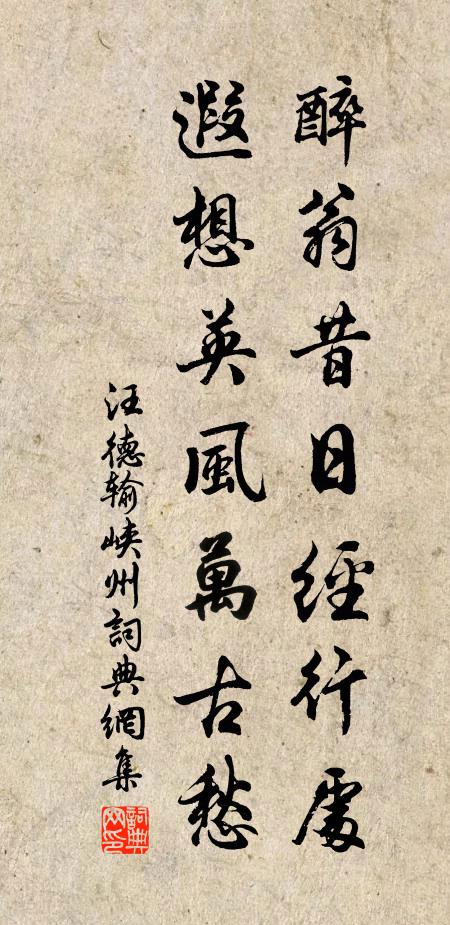 醉翁昔日經行處
遐想英風萬古愁
汪德输峽州詞典網集
詞典網印